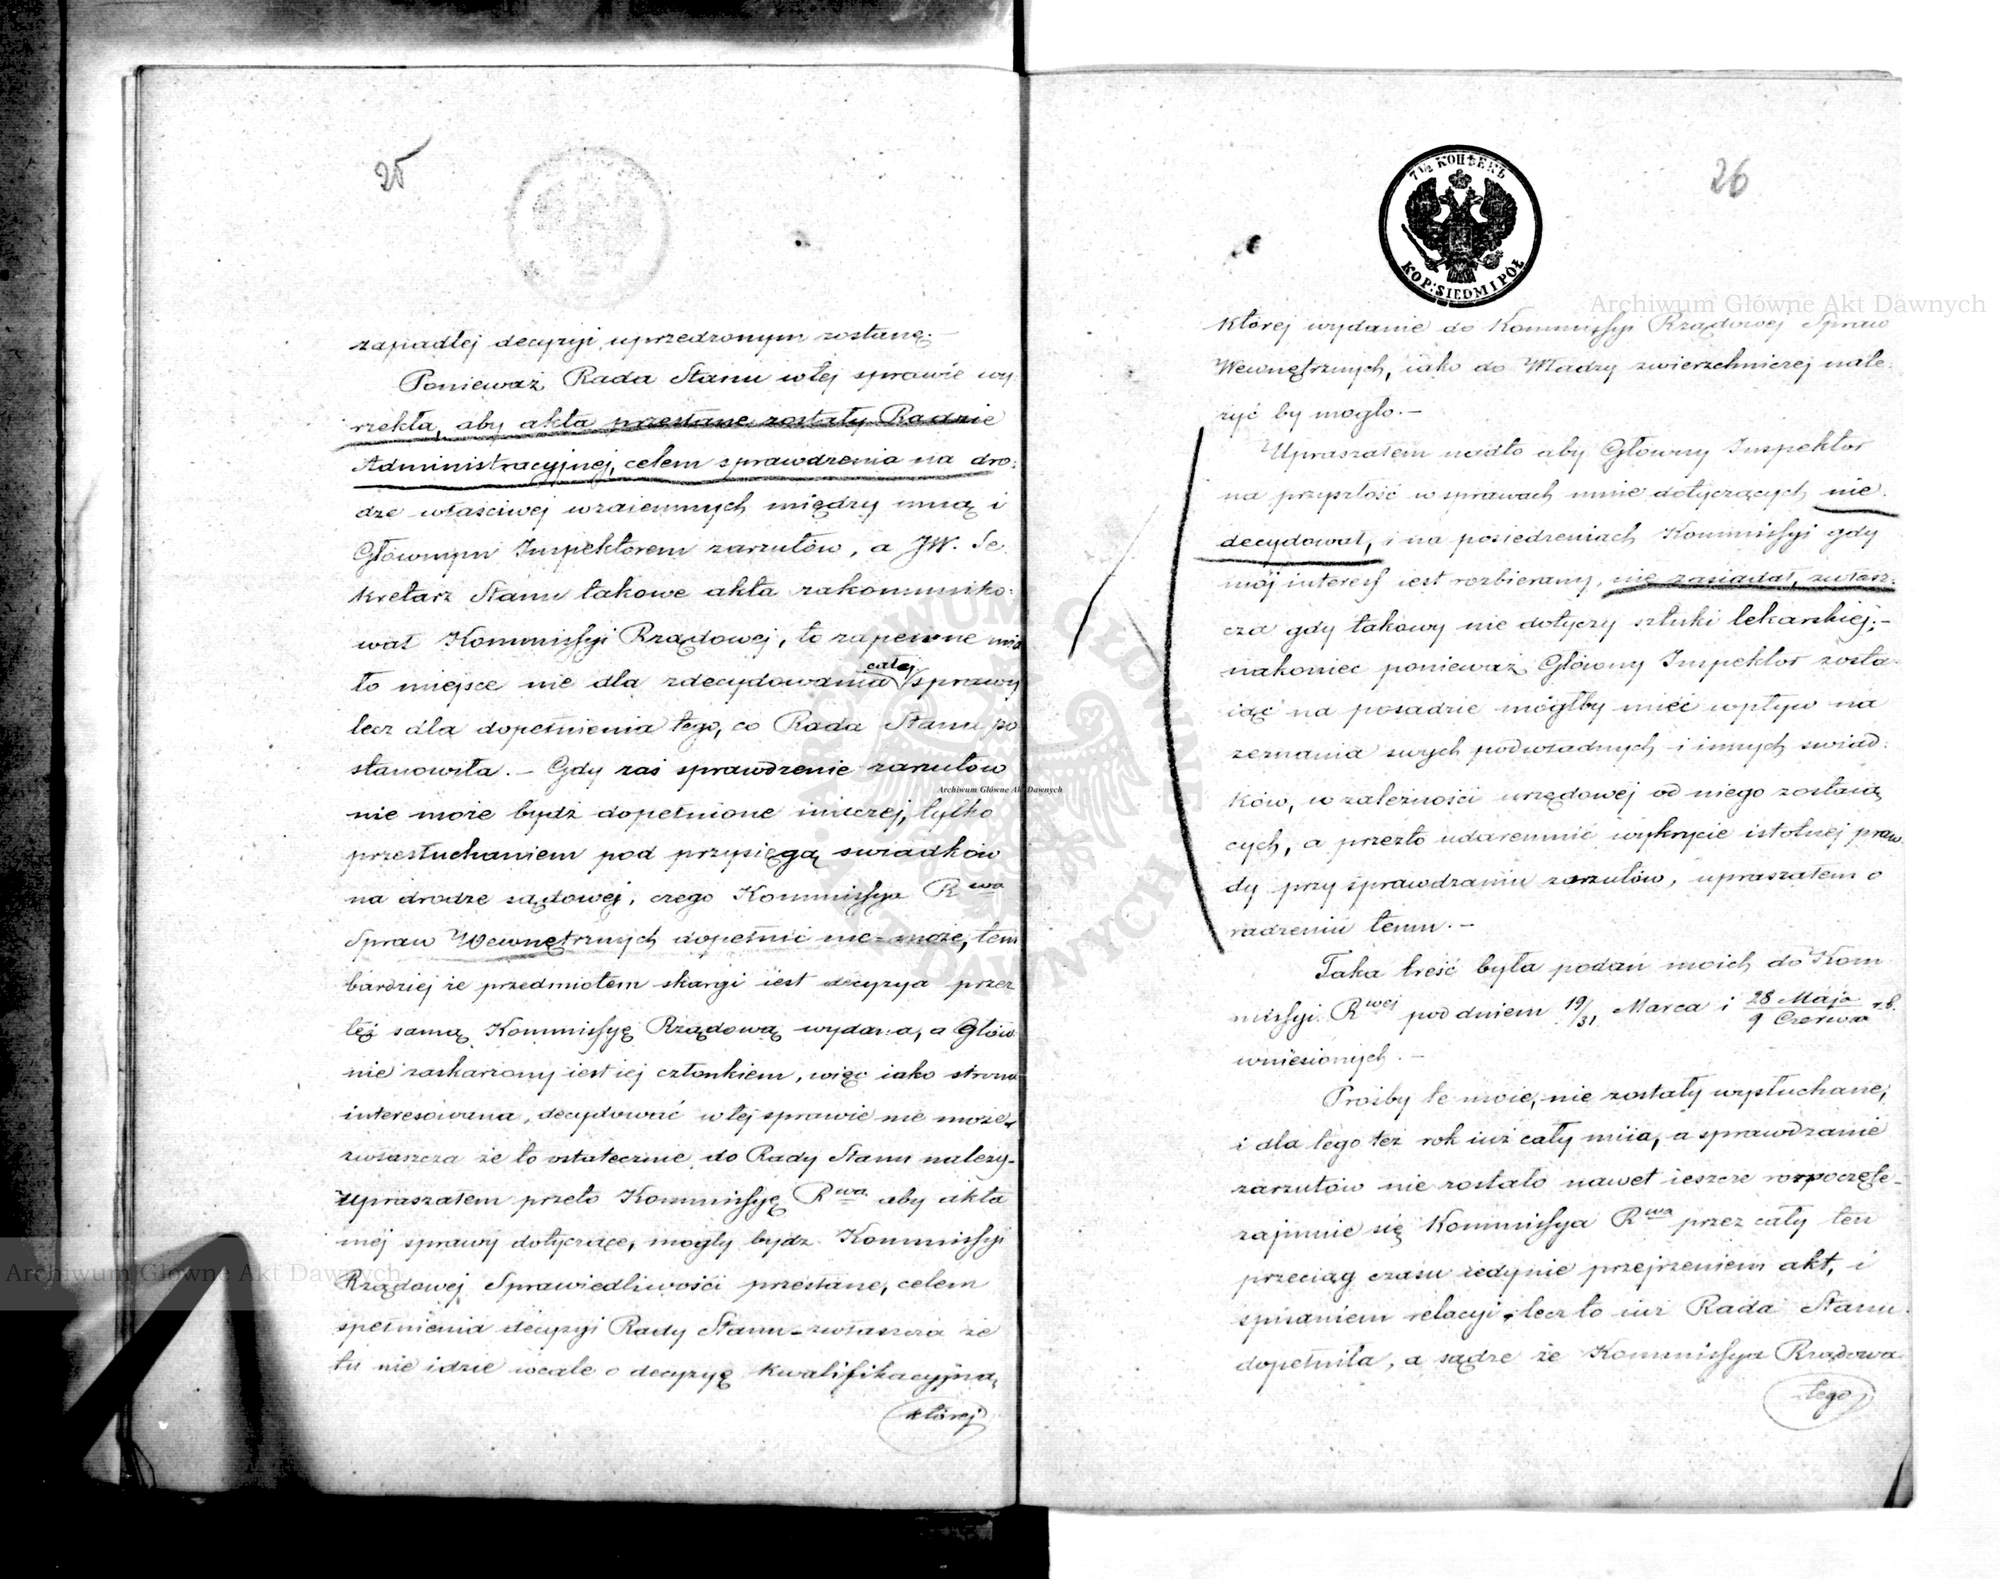 25
zapiadłej decyzyi uprzedzonym zostanę.—
Ponieważ Rada Stanu w tej sprawie wy-
rzekła, aby akta przesłane zostały Radzie
Administracyjnej, celem sprawdzenia na dro-
dze właściwej wzaiemnych między mną i
Głównym Inspektorem zarzutów, a JW. Se-
kretarz Stanu takowe akta zakommuniko-
wał Kommissyi Rządowej, to zapewne mia
ło miejsce nie dla zdecydowania całej sprawy
lecz dla dopełnienia tego, co Rada Stanu po
stanowiła. — Gdy zaś sprawdzenie zarzutów
nie może bydź dopełnione inaczej, tylko
przesłuchaniem pod przysięgą swiadków
na drodze sądowej, czego Kommissya Rwa
Spraw Wewnętrznych dopełnić nie może, tem
bardziej że przedmiotem skargi iest decyzya przez
tęż samą Kommissyę Rządową wydana, a Głów
nie zaskarżony iest iej członkiem, więc iako strona
interesowana, decydować w tej sprawie nie może,
zwłaszcza że to ostatecznie do Rady Stanu należy—
upraszałem przeto Kommissyę Rwa aby akta
mej sprawy dotyczące, mogły bydz Kommissyi
Rządowej Sprawiedliwości przesłane, celem
spełnienia decyzyi Rady Stanu — zwłaszcza że
tu nie idzie wcale o decyzyę kwalifikacyjną,
której
26
7½ КОПѢЕКЪ
KOP: SIEDM I PÓŁ
której wydanie do Kommissyi Rządowej Spraw
Wewnętrznych, iako do Władzy zwierzchniczej nale-
żyć by mogło.—
Upraszałem nadto aby Główny Inspektor
na przyszłość w sprawach mnie dotyczących nie
decydował, i na posiedzeniach Kommissyi gdy
mój interess iest rozbierany, nie zasiadał, zwłasz-
cza gdy takowy nie dotyczy sztuki lekarskiej;—
nakoniec ponieważ Główny Inspektor zosta-
iąc na posadzie mógłby mieć wpływ na
zeznania swych podwładnych i innych swiad-
ków, w zależności urzędowej od niego zostaią
cych, a przezto udaremnić wykrycie istotnej praw-
dy przy sprawdzaniu zarzutów, upraszałem o
radzeniu temu.—
Taka treść była podań moich do Kom-
missyi Rwej pod dniem 19/31 Marca i 28 Maja / 9 Czerwca r.b.
wniesionych.—
Prośby te moie, nie zostały wysłuchane,
i dla tego też rok iuż cały miia, a sprawdzanie
zarzutów nie zostało nawet ieszcze rozpoczęte—
zajmuie się Kommissya Rwa przez cały ten
przeciąg czasu iedynie przejrzeniem akt, i
spisaniem relacyi, lecz to iuż Rada Stanu
dopełniła, a sądzę że Kommissya Rządowa
tego
Archiwum Główne Akt Dawnych
Archiwum Główne Akt Dawnych
Archiwum Główne Akt Dawnych
ARCHIWUM GŁÓWNE AKT DAWNYCH